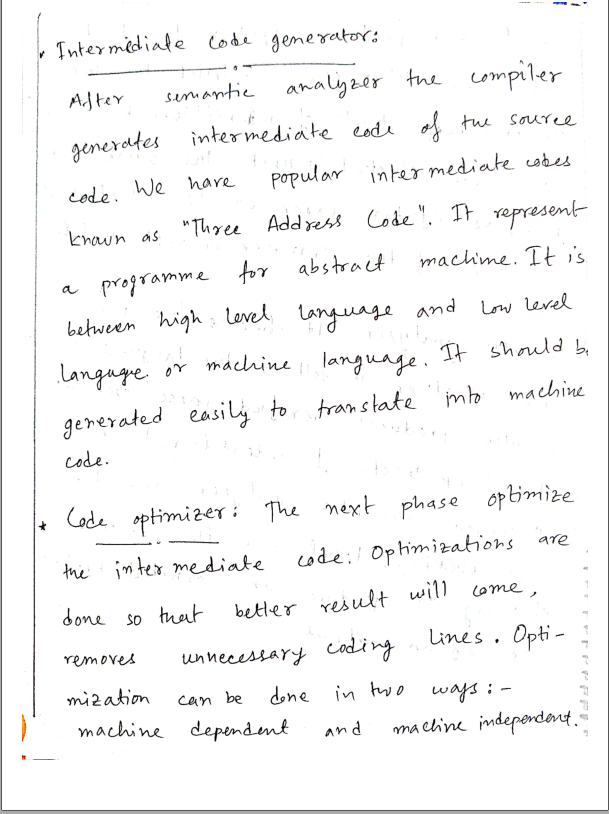 * Intermediate Code generator:
After semantic analyzer the compiler
generates intermediate code of the source
code. We have popular intermediate codes
known as "Three Address Code". It represent
a programme for abstract machine. It is
between high level language and low level
language or machine language. It should be
generated easily to translate into machine
code.
* Code optimizer: The next phase optimize
the intermediate code. Optimizations are
done so that better result will come,
removes unnecessary coding lines. Opti-
mization can be done in two ways :-
machine dependent and machine independent.